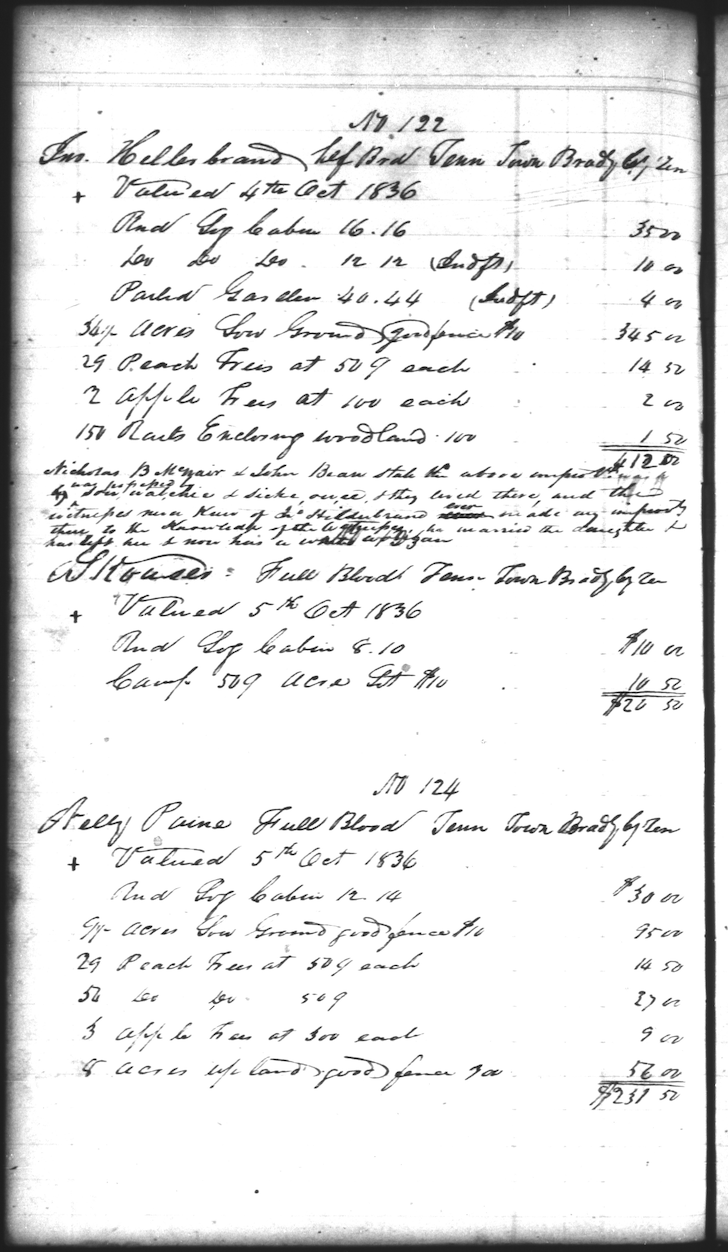 No 122
Jno. Hellesbrand hlf Brd Tenn Town Brady Cty Ten
+ Valued 4th Oct 1836
Rnd Log Cabin 16.16 35 00
Do Do Do. 12 12 (Indft) 10 00
Paild Garden 40.44 (Indft) 4 00
34½ Acres Low Ground good fence $10 345 00
29 Peach Trees at 50¢ each 14 50
2 Apple Trees at 100 each 2 00
150 Rails Enclosing woodland 100 1 50
412 00
Nicholas B McNair & John Bean state the above
by & they used there, and the
witnesses never knew of Jno Hildebrand ever made any
there to the knowledge of the witnesses, he married the daughter &
has left her & now has a
Full Blood Tenn Town Brady Cty Ten
+ Valued 5th Oct 1836
Rnd Log Cabin 8.10 $10 00
Camp 50¢ Acre Lot $10 10 50
$20 50
No 124
Nelly Paine Full Blood Tenn Town Brady Cty Ten
+ Valued 5th Oct 1836
Rnd Log Cabin 12.14 $30 00
9½ Acres Low Ground good fence $10 95 00
29 Peach Trees at 50¢ each 14 50
54 Do Do 50¢ 27 00
3 Apple Trees at 300 each 9 00
8 Acres upland good fence 56 00
$231 50